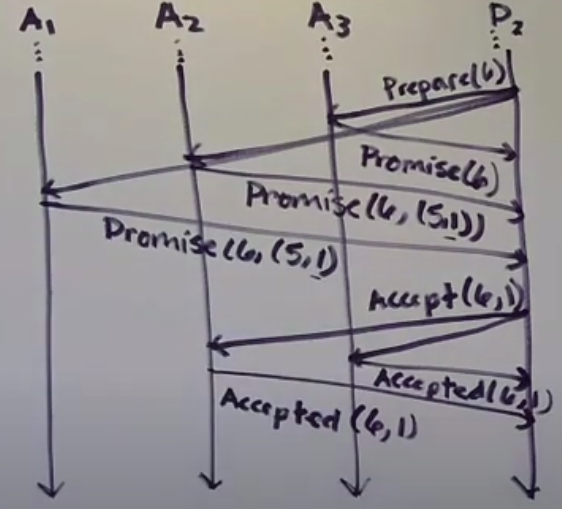 A1 A2 A3 P2
Prepare(6)
Promise(6)
Promise(6, (5,1))
Promise(6, (5,1)
Accept(6,1)
Accepted(6,1)
Accepted(6,1)